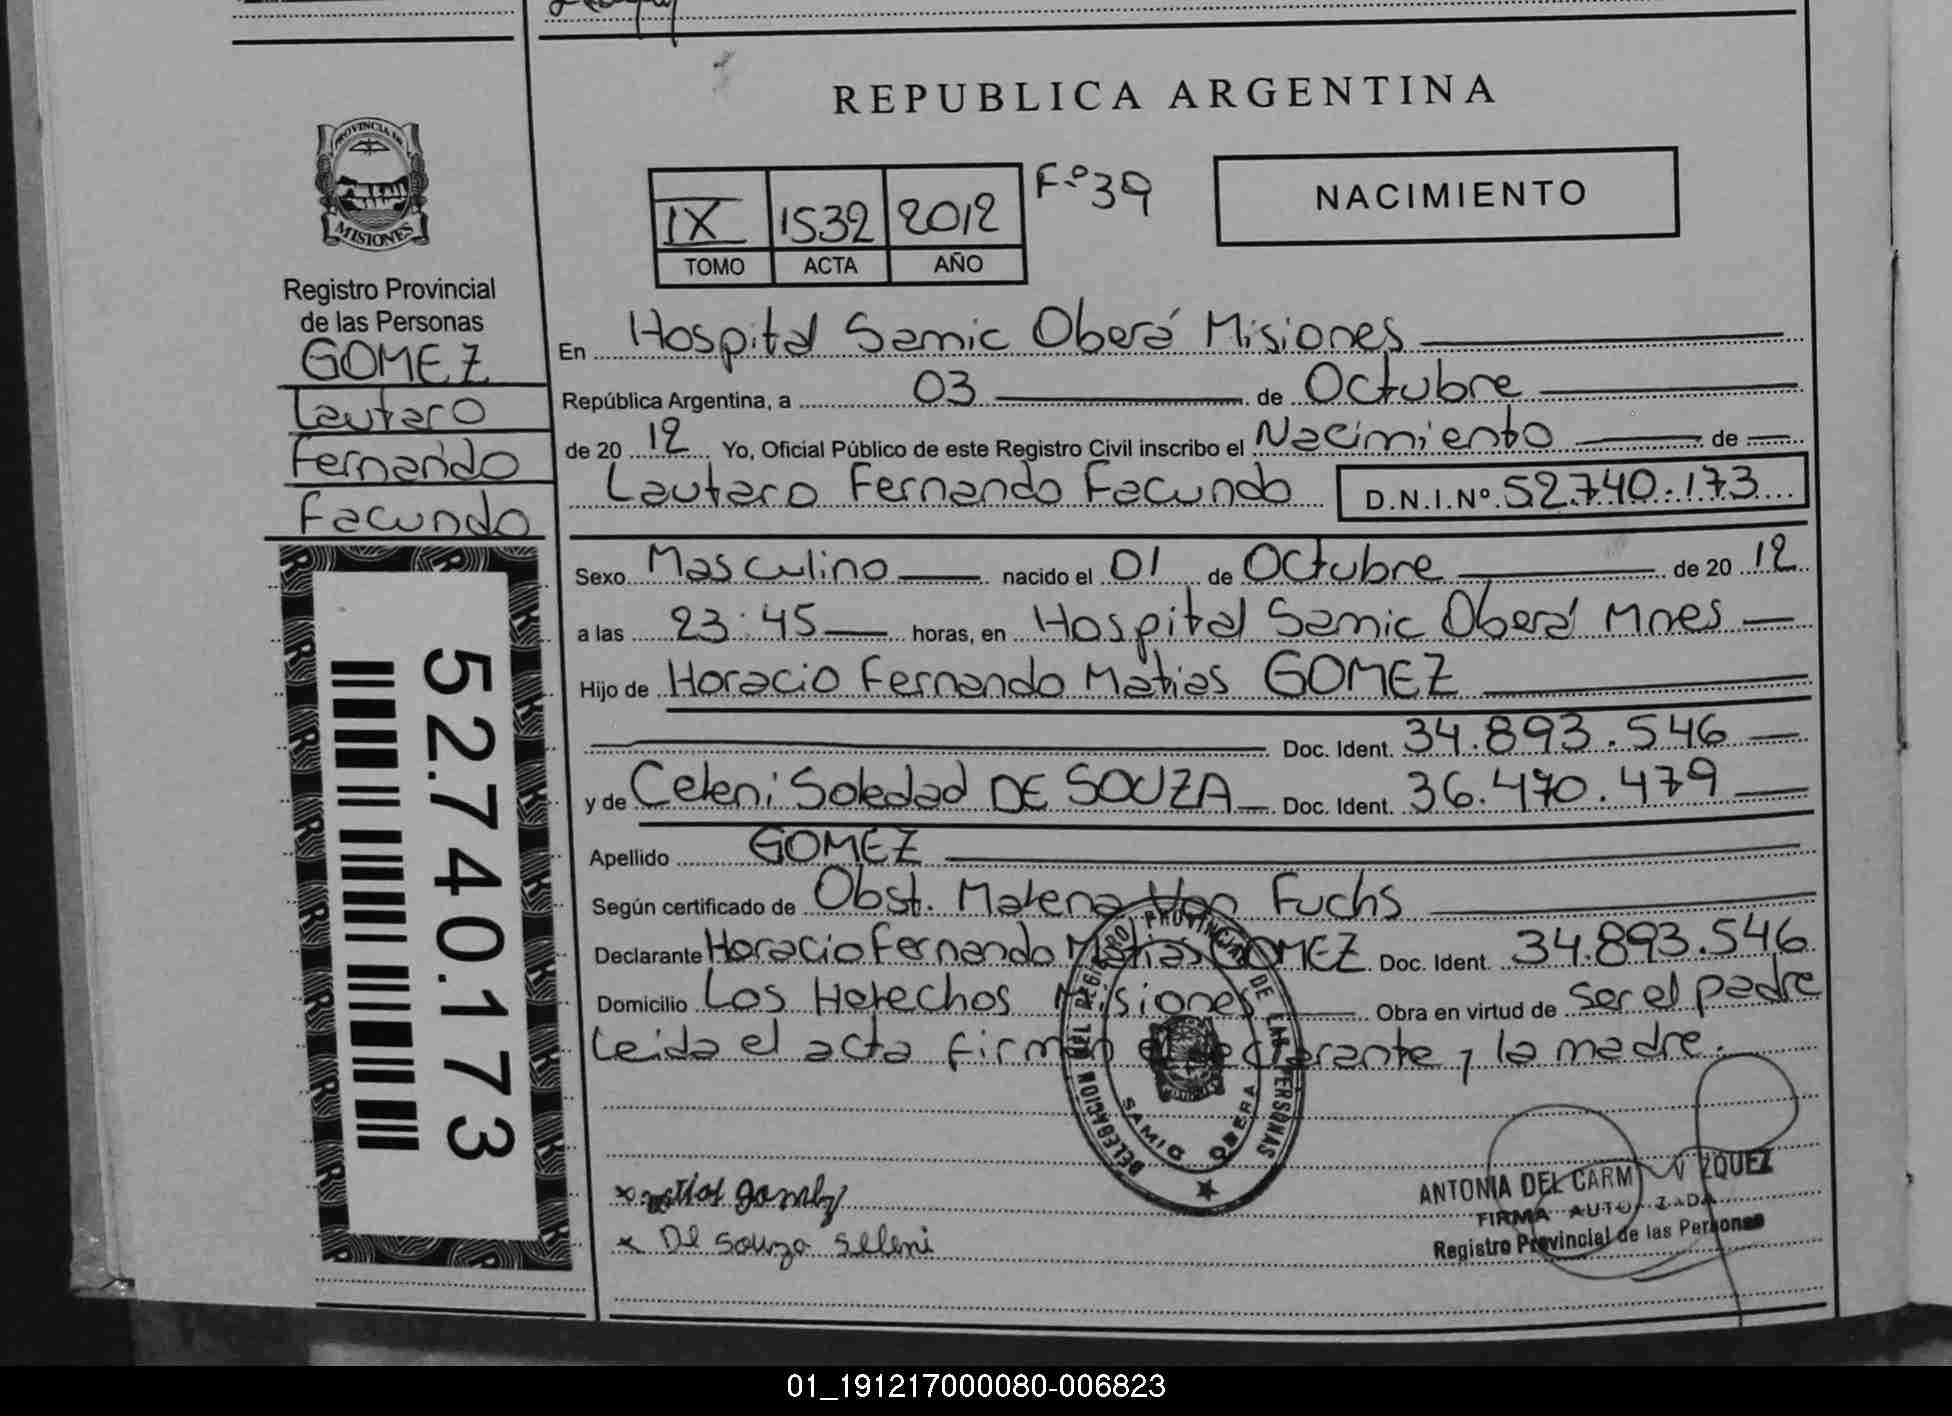 REPUBLICA ARGENTINA
PROVINCIA DE
MISIONES
Registro Provincial
de las Personas
GOMEZ
Lautaro
Fernando
Facundo
52.740.173
IX 1532 2012 F.º39
TOMO ACTA AÑO
NACIMIENTO
En Hospital Samic Oberá Misiones
República Argentina, a 03 de Octubre
de 2012 Yo, Oficial Público de este Registro Civil inscribo el Nacimiento de
Lautaro Fernando Facundo D.N.I.Nº 52.740.173
Sexo Masculino nacido el 01 de Octubre de 2012
a las 23:45 horas, en Hospital Samic Oberá Mnes
Hijo de Horacio Fernando Matias GOMEZ
Doc. Ident. 34.893.546
y de Celeni Soledad DE SOUZA Doc. Ident. 36.470.479
Apellido GOMEZ
Según certificado de Obst. Malena Von Fuchs
Declarante Horacio Fernando Matias GOMEZ Doc. Ident. 34.893.546
Domicilio Los Helechos Misiones Obra en virtud de ser el padre
Leida el acta firman el declarante y la madre.
DELEGACION DEL REGISTRO PROVINCIAL DE LAS PERSONAS
SAMIC OBERA
matias gomez
x De Souza Seleni
ANTONIA DEL CARM VAZQUEZ
FIRMA AUTORIZADA
Registro Provincial de las Personas
01_191217000080-006823